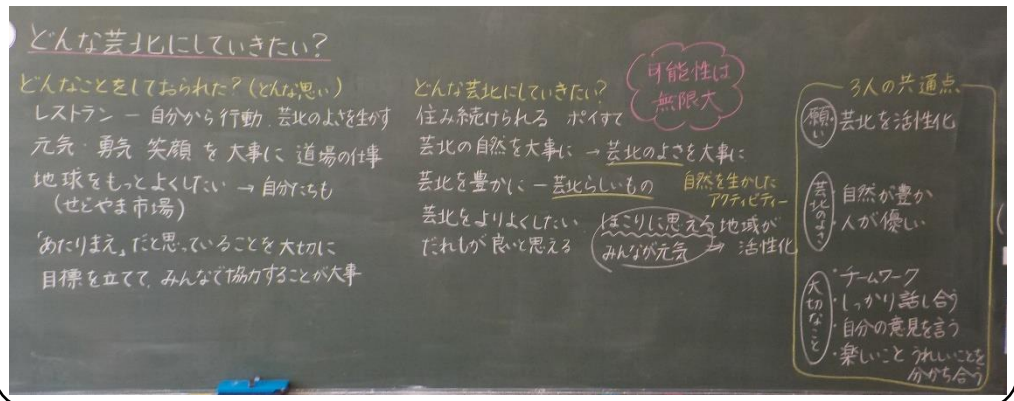 どんな芸北にしていきたい？
どんなことをしておられた？（どんな思い）
レストラン ー 自分から行動 芸北のよさを生かす
元気・勇気 笑顔 を 大事に 道場の仕事
地球をもっとよくしたい → 自分たちも
（せどやま市場）
「あたりまえ」だと思っていることを大切に
目標を立てて、みんなで協力することが大事
どんな芸北にしていきたい？
可能性は
無限大
住み続けられる ポイすて
芸北の自然を大事に → 芸北のよさを大事に
芸北を豊かに ー 芸北らしいもの
自然を生かした
アクティビティー
芸北をよりよくしたい
ほこりに思える 地域が
だれもが良いと思える
みんなが元気 → 活性化
3人の共通点
願い
芸北を活性化
芸北のよさ
・自然が豊か
・人が優しい
大切なこと
・チームワーク
・しっかり話し合う
・自分の意見を言う
・楽しいこと うれしいことを
分かち合う